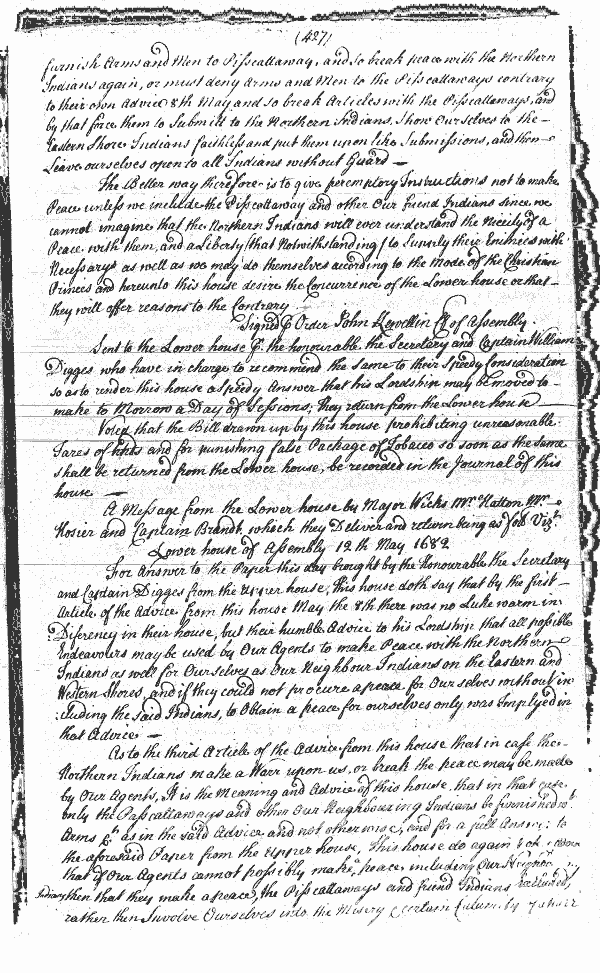 (427)
furnish Arms and Men to Pisscattaway, and so break peace with the Northern
Indians again, or must deny Arms and Men to the Pisscattaways contrary
to their own Advice 8th May and so break Articles with the Pisscattaways, and
by that force them to Submitt to the Northern Indians, Show Ourselves to the
Eastern Shore Indians faithless and put them upon like Submissions, and then
Leave ourselves open to all Indians without Guard —
The Better way therefore is to give peremptory Instructions not to make
Peace unless we include the Pisscattaway and other Our Friend Indians since we
cannot imagine that the Northern Indians will ever understand the Nicety of a
Peace with them, and a Liberty (that Notwithstanding) to Supply their Enimies with
Necessarys as well as we may do themselves according to the Mode of the Christian
Princes and hereunto this house desire the Concurrence of the Lower house or that
they will offer reasons to the Contrary
Signed P Order John Lewellin Cl of Assembly.
Sent to the Lower house P. the honourable the Secretary and Captain William
Digges who have in charge to recommend the same to their Speedy Consideration
so as to render this house a Speedy Answer that his Lordship may be moved to
make to Morrow a Day of Sessions; they return from the Lower house
Voted that the Bill drawn up by this house prohibiting unreasonable
Tares of and for punishing false Package of Tobacco so soon as the same
shall be returned from the Lower house, be recorded in the Journal of this
house —
A Message from the Lower house by Major Wicks Mr Hatton Mr
Hosier and Captain Brandt, which they Deliver and return being as foll Vizt
Lower house of Assembly 12th May 1682
For Answer to the Paper this day brought by the Honourable the Secretary
and Captain Digges from the Upper house, this house doth say that by the first
Article of the Advice from this house May the 8th there was no Luke warm in
Diferency in their house, but their humble Advice to his Lordship that all possible
Endeavours may be used by Our Agents to make Peace with the Northern
Indians as well for Ourselves as Our Neighbour Indians on the Eastern and
Western Shores, and if they could not procure a peace for Ourselves without in
:cluding the said Indians, to Obtain a peace for ourselves only was Implyed in
that Advice —
As to the third Article of the Advice from this house that in case the
Northern Indians make a Warr upon us, or break the peace may be made
by Our Agents, It is the Meaning and Advice of this house, that in that case
only the Passcattaways and other Our Neighbouring Indians be furnished wt
Arms &c as in the said Advice and not otherwise, and for a full Answer to
the aforesaid Paper from the Upper house, This house do again
that if Our Agents cannot possibly make a peace, including Our Neighbour
Indians then that they make a peace, the Pisscattaways and friend Indians Excluded,
rather then Involve Ourselves into the Misery & certain Calamity